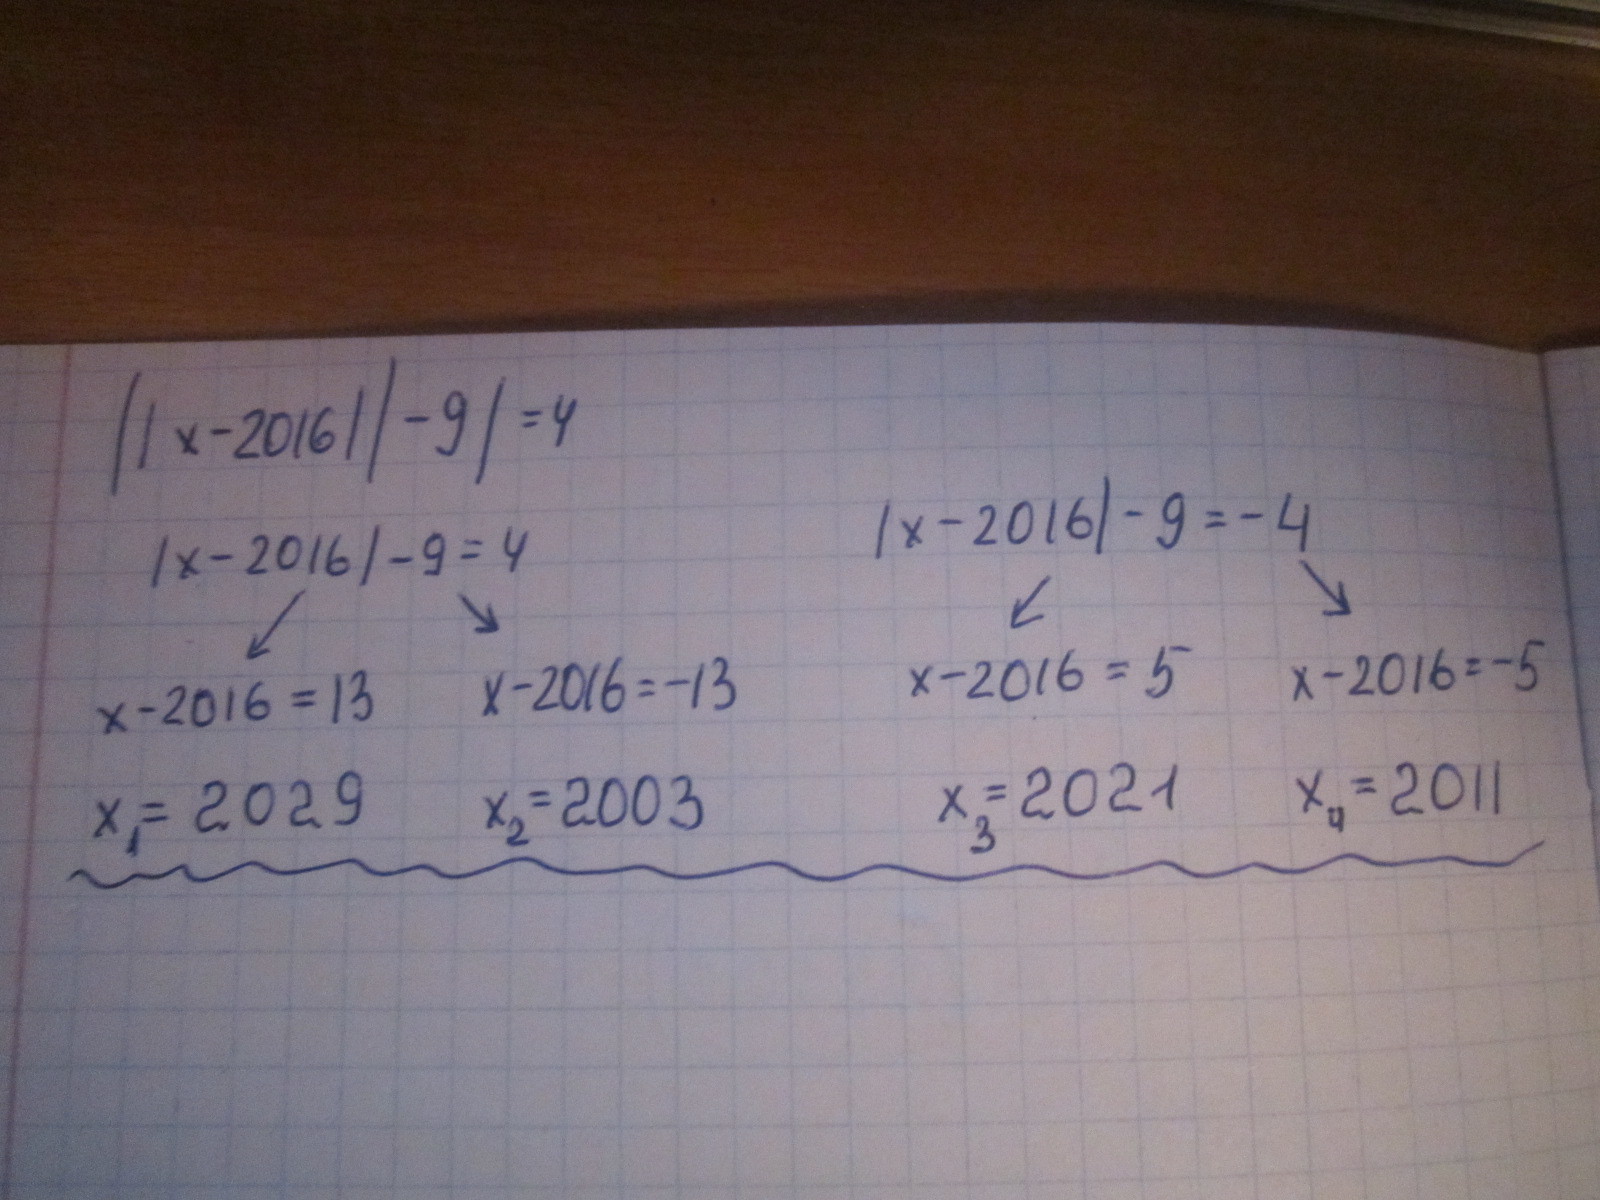 ||x-2016||-9|=4
|x-2016|-9=4 |x-2016|-9=-4
x-2016=13 x-2016=-13 x-2016=5 x-2016=-5
x₁=2029 x₂=2003 x₃=2021 x₄=2011